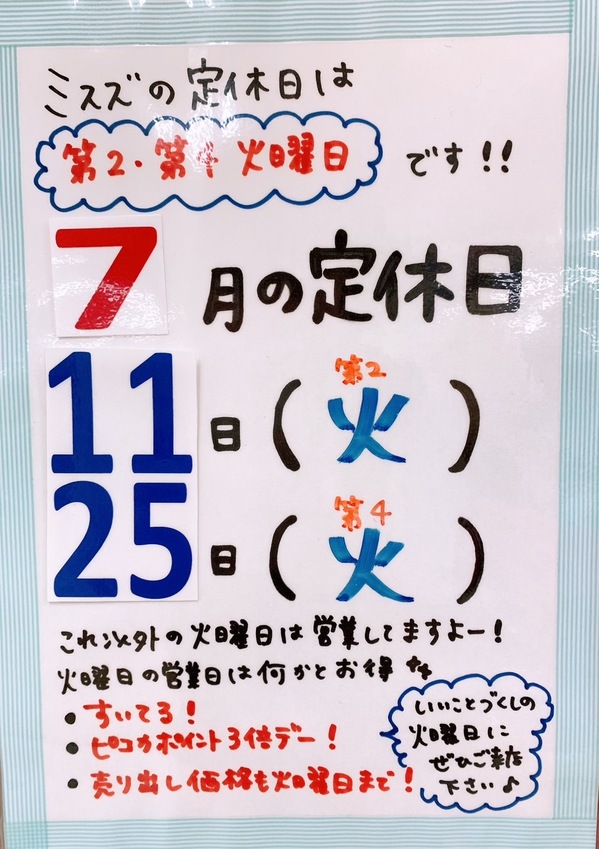 ミスズの定休日は
第2・第4 火曜日 です!!
7月の定休日
11日(第2火)
25日(第4火)
これ以外の火曜日は営業してますよー!
火曜日の営業日は何かとお得
• すいてる!
• ピコカポイント3倍デー!
• 売り出し価格も火曜日まで!
いいことづくしの
火曜日に
ぜひご来店
下さい♪